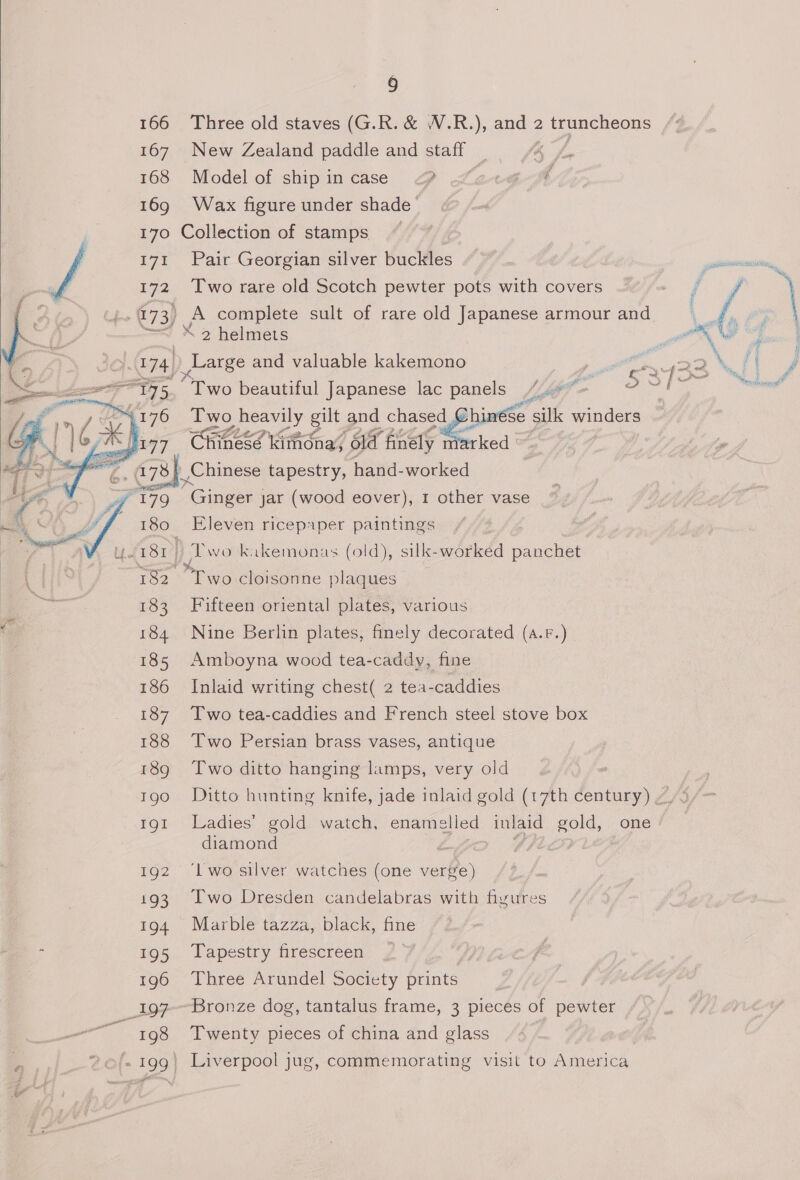 9
166 Three old staves (G.R. & W.R.), and 2 truncheons
167 New Zealand paddle and staff
168 Model of ship in case
169 Wax figure under shade
170 Collection of stamps
171 Pair Georgian silver buckles
172 Two rare old Scotch pewter pots with covers
173 A complete sult of rare old Japanese armour and
2 helmets
174 Large and valuable kakemono
175 Two beautiful Japanese lac panels
176 Two heavily gilt and chased Chinese silk winders
177 Chinese kimona, old finely marked
178 Chinese tapestry, hand-worked
179 Ginger jar (wood eover), 1 other vase
180 Eleven ricepaper paintings
181 Two kakemonas (old), silk-worked panchet
182 Two cloisonne plaques
183 Fifteen oriental plates, various
184 Nine Berlin plates, finely decorated (A.F.)
185 Amboyna wood tea-caddy, fine
186 Inlaid writing chest( 2 tea-caddies
187 Two tea-caddies and French steel stove box
188 Two Persian brass vases, antique
189 Two ditto hanging lamps, very old
190 Ditto hunting knife, jade inlaid gold (17th century)
191 Ladies' gold watch, enamelled inlaid gold, one
diamond
192 Two silver watches (one verge)
193 Two Dresden candelabras with figures
194 Marble tazza, black, fine
195 Tapestry firescreen
196 Three Arundel Society prints
197 Bronze dog, tantalus frame, 3 pieces of pewter
198 Twenty pieces of china and glass
199 Liverpool jug, commemorating visit to America